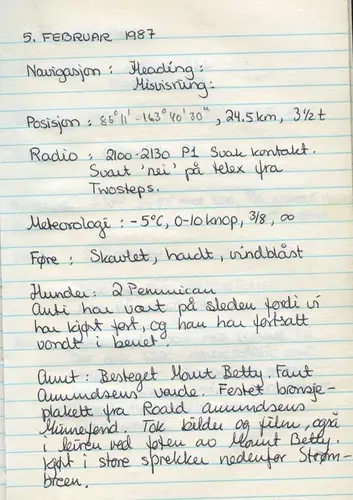 5. FEBRUAR 1987
Navigasjon : Heading :
Misvisning :
Posisjon : 85°11' -163°40'30" , 24.5 km, 3½ t
Radio : 2100-2130 P1 Svak kontakt.
Svart 'nei' på telex fra
Twosteps.
Meteorologi : -5°C, 0-10 knop, 3/8, ∞
Føre : Skavlet, hardt, vindblåst
Hunder : 2 Pemmican
Anti har vært på sleden fordi vi
har kjørt fort, og han har fortsatt
vondt i benet.
Annet : Besteget Mount Betty. Fant
Amundsens varde. Festet bronsje-
plakett fra Roald Amundsens
Minnefond. Tok bilder og film, også
i leiren ved foten av Mount Betty.
Kjørt i store sprekker nedenfor Strøm-
breen.